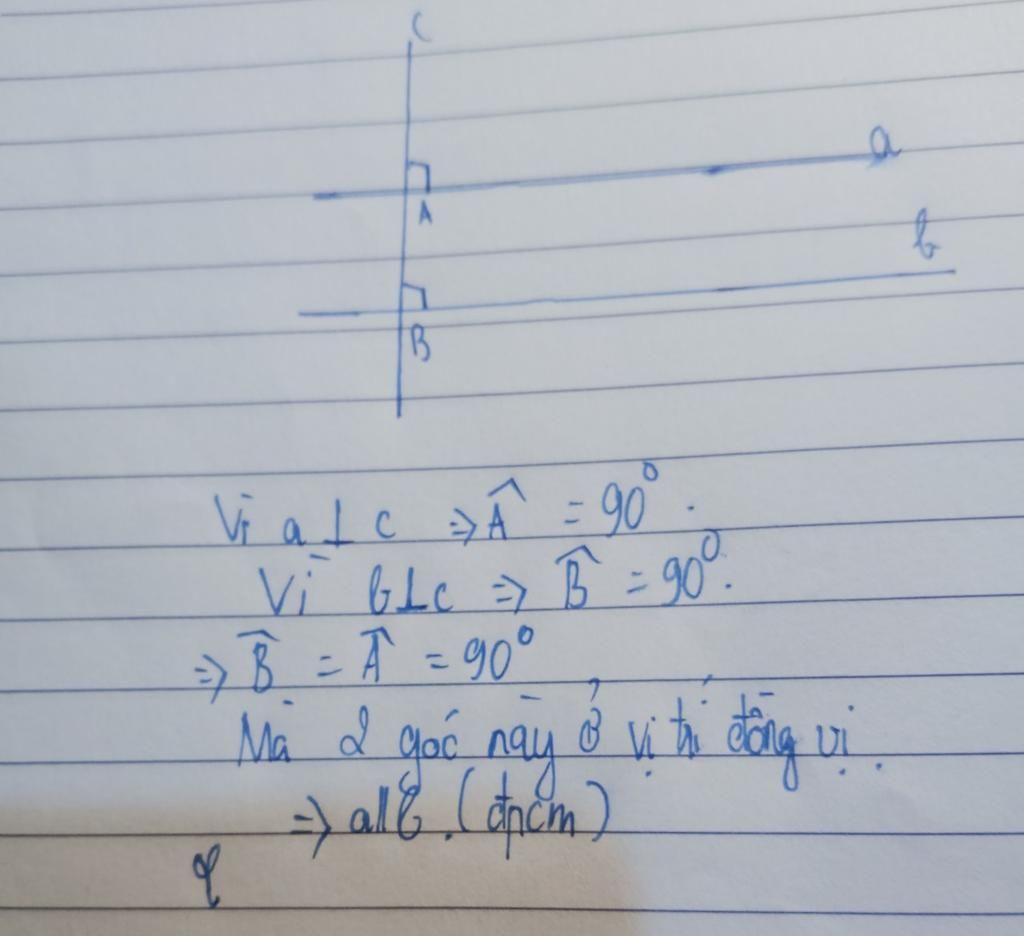 c
a
A
b
B
Vì a ⊥ c ⇒ Â = 90⁰.
Vì b ⊥ c ⇒ B̂ = 90⁰.
⇒ B̂ = Â = 90⁰
Mà 2 góc này ở vị trí đồng vị.
⇒ a // b. (đpcm)